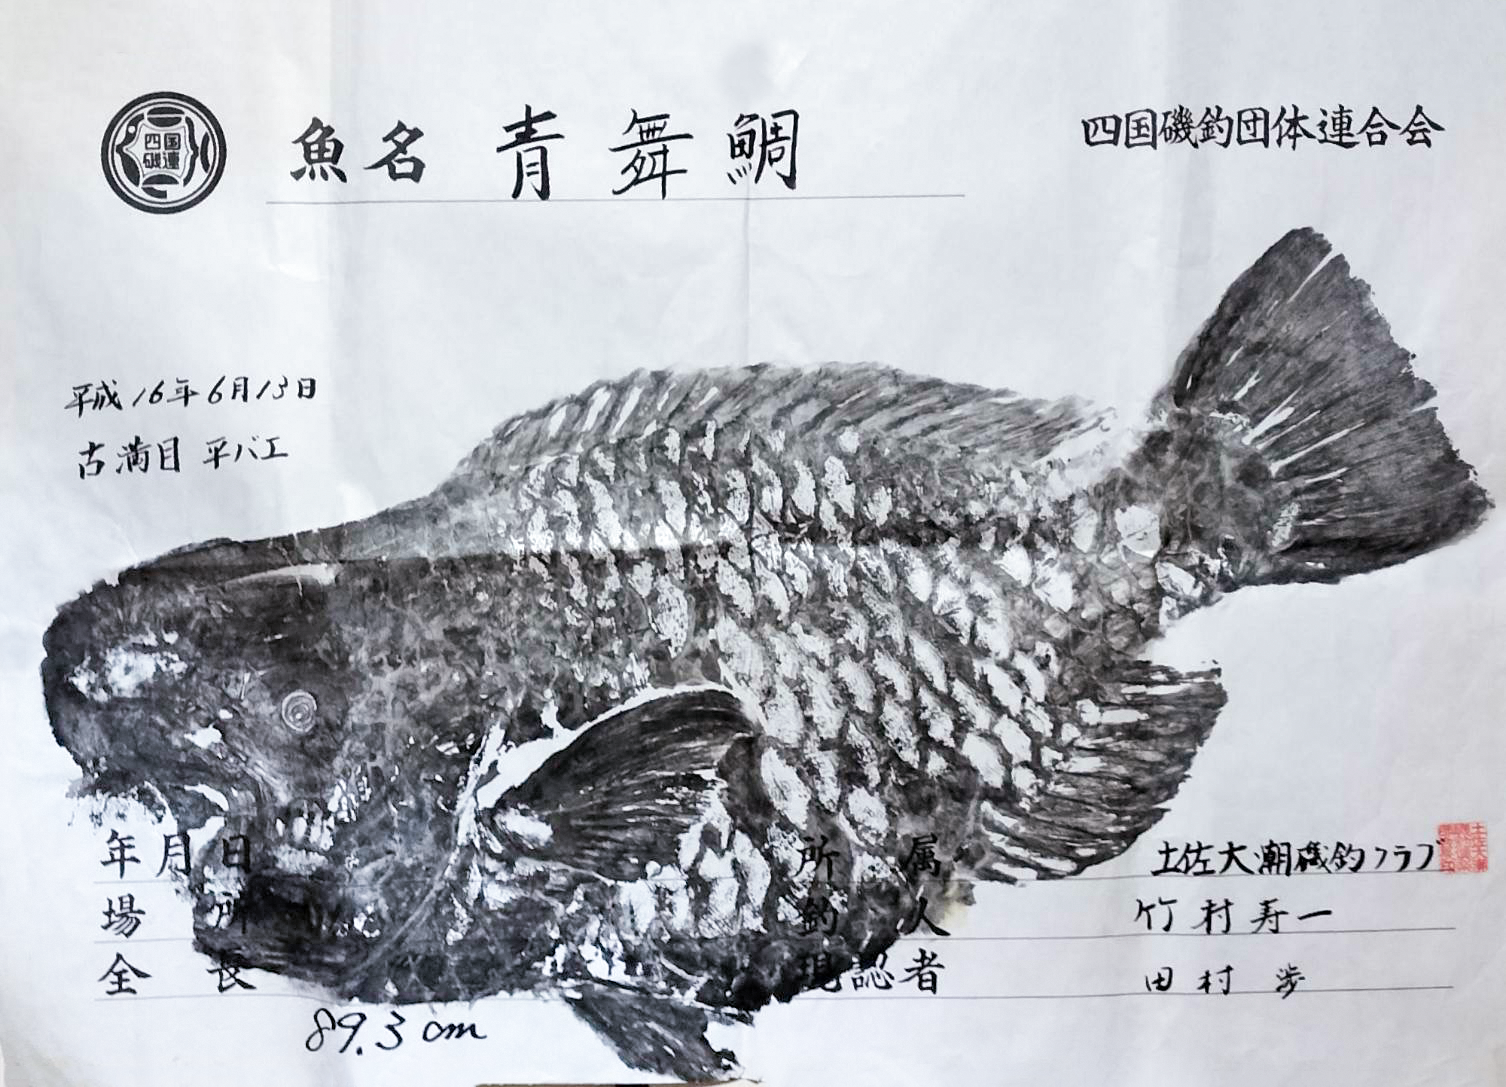 四国
磯連
魚名 青舞鯛
四国磯釣団体連合会
平成16年6月13日
古満目 平バエ
年月日
場所
全長
89.3cm
所属 土佐大潮磯釣クラブ
釣人 竹村寿一
現認者 田村 渉